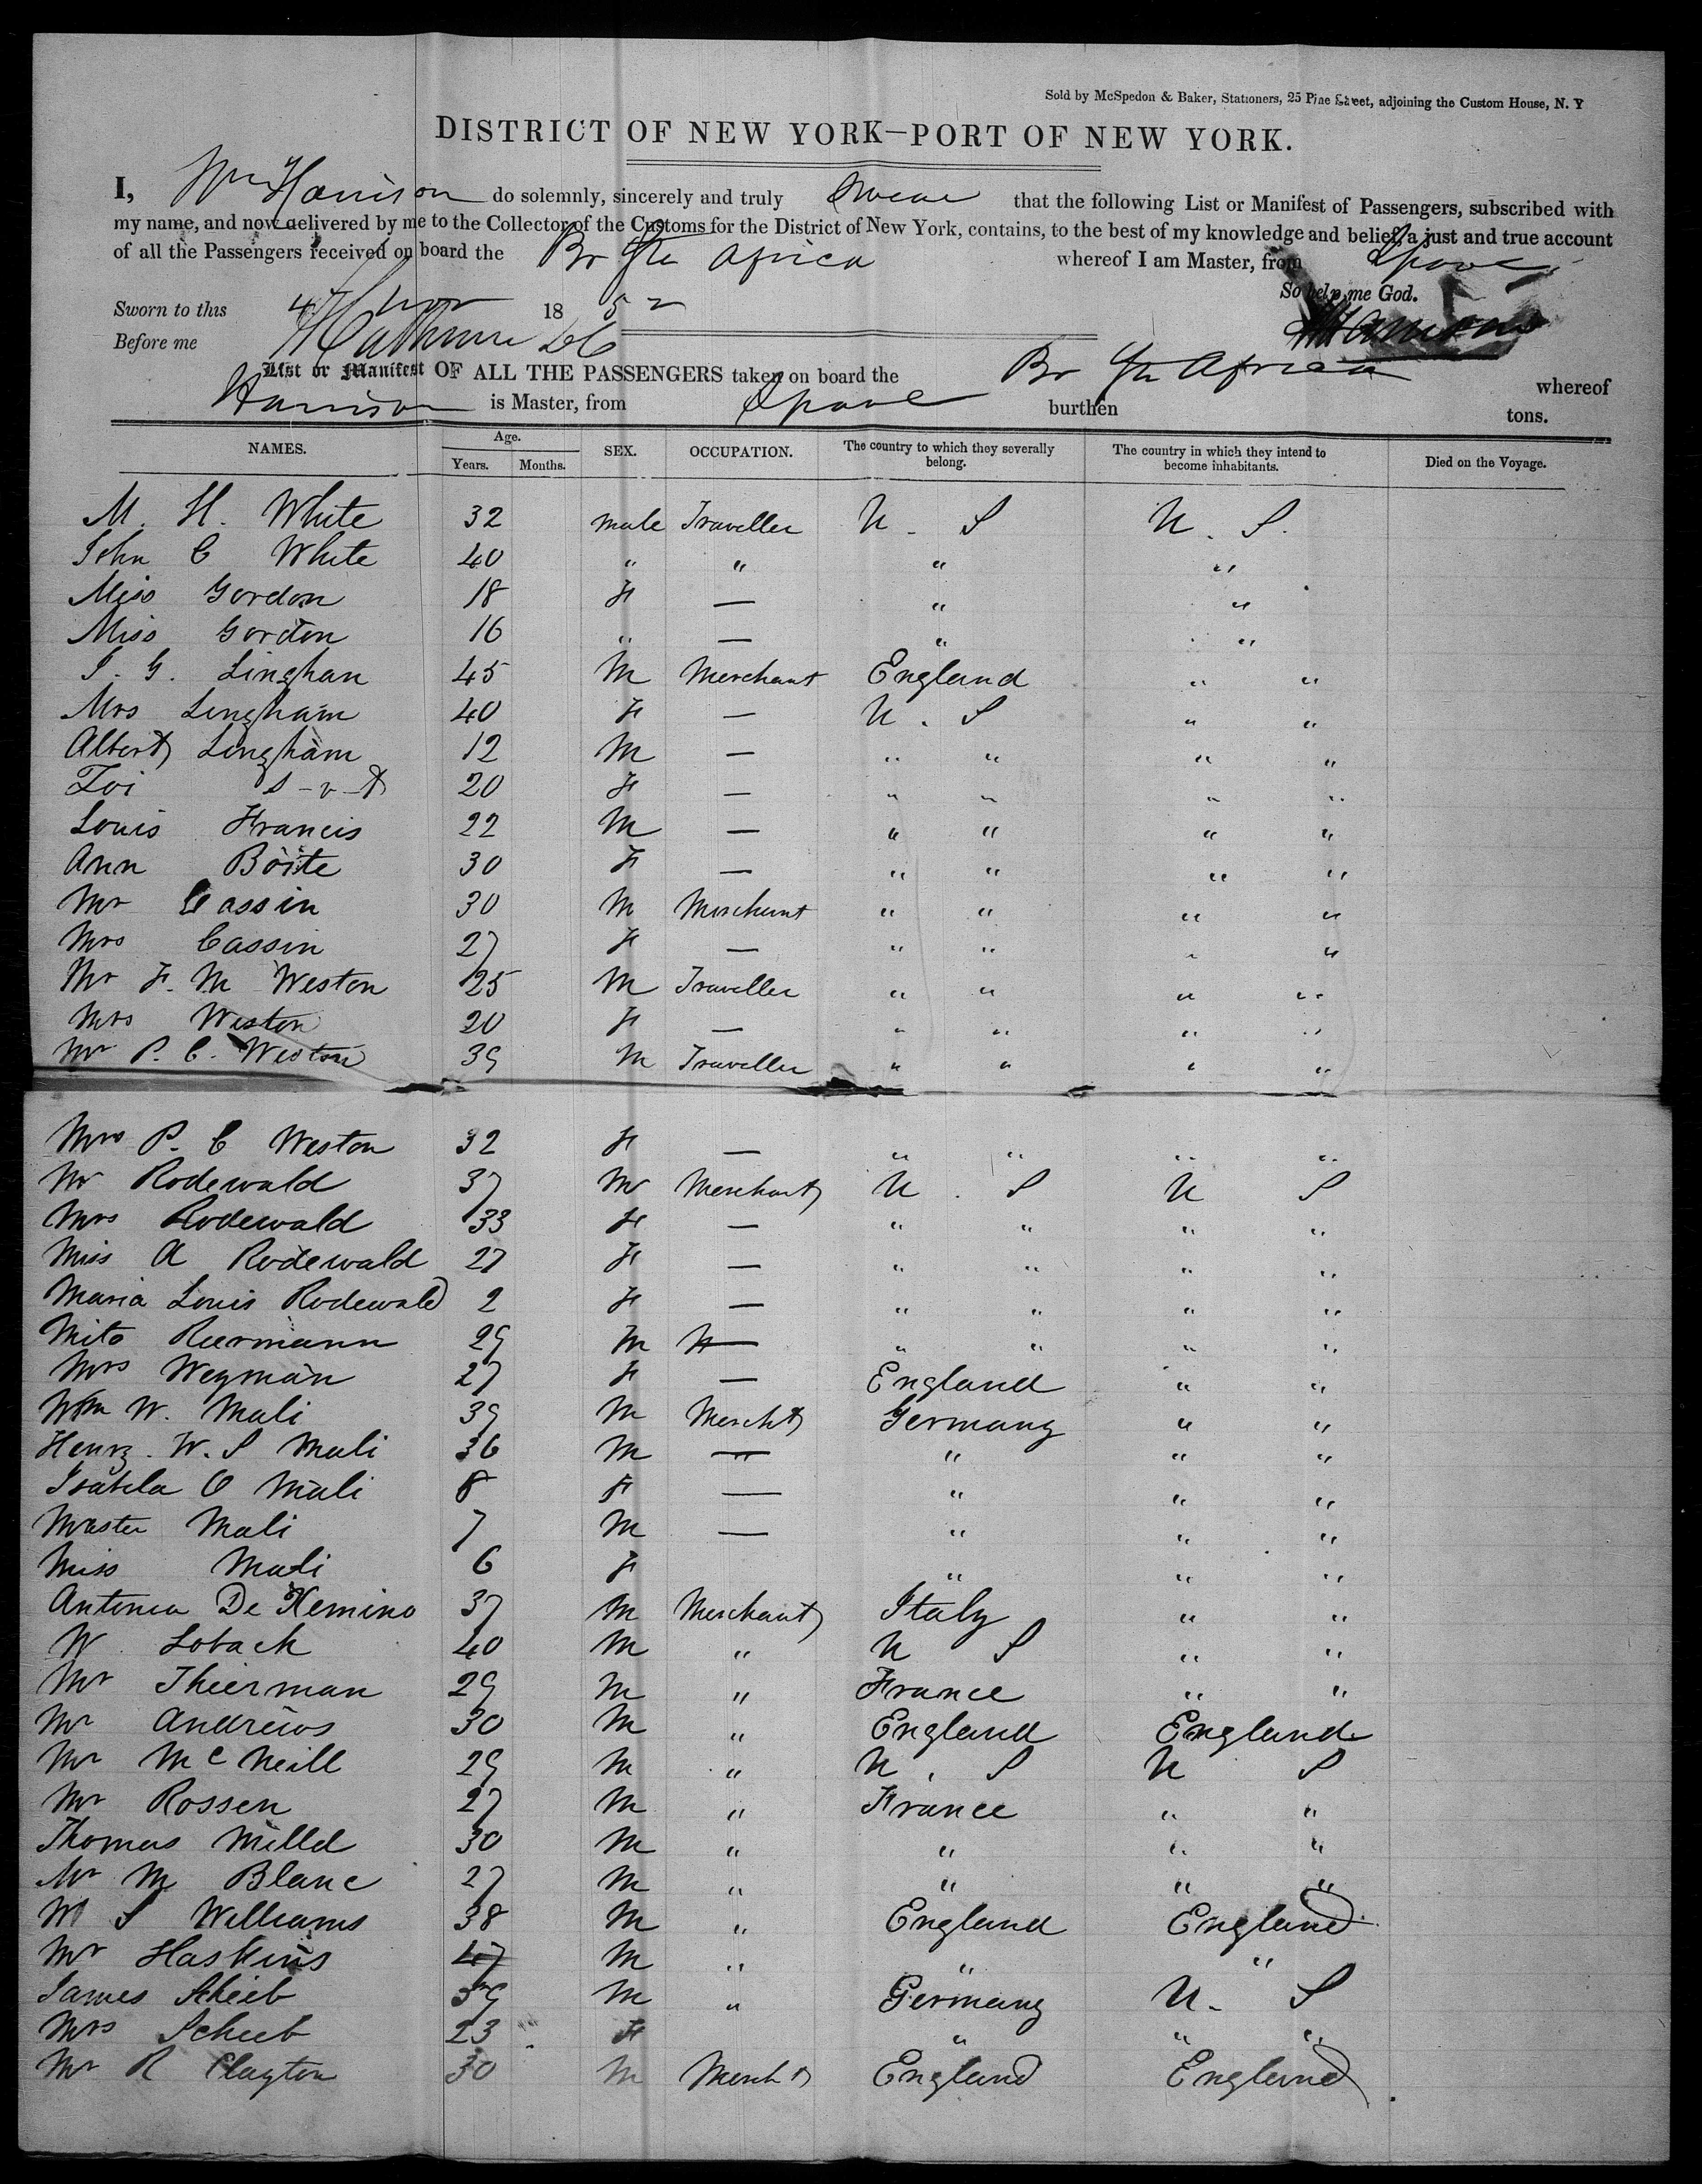 Sold by McSpedon & Baker, Stationers, 25 Pine Street, adjoining the Custom House, N. Y
DISTRICT OF NEW YORK—PORT OF NEW YORK.
I, Wm Harrison do solemnly, sincerely and truly swear that the following List or Manifest of Passengers, subscribed with
my name, and now delivered by me to the Collector of the Customs for the District of New York, contains, to the best of my knowledge and belief, a just and true account
of all the Passengers received on board the Br Str Africa whereof I am Master, from Lpool
So help me God.
Sworn to this 4 Nov 1852
Harrison
Before me
List or Manifest OF ALL THE PASSENGERS taken on board the Br Str Africa whereof
Harrison is Master, from Lpool burthen tons.
NAMES. Age. SEX. OCCUPATION. The country to which they severally belong. The country in which they intend to become inhabitants. Died on the Voyage.
Years. Months.
M. H. White 32 male Traveller U. S U. S.
John C White 40 " " " "
Miss Gordon 18 F — " "
Miss Gordon 16 " — " "
J. G. Linghan 45 M Merchant England " "
Mrs Lingham 40 F — U. S " "
Albert Lingham 12 M — " " " "
Zoi s-v-t 20 F — " " " "
Louis Francis 22 M — " " " "
Ann Boite 30 F — " " " "
Mr Cassin 30 M Merchant " " " "
Mrs Cassin 27 F — " " " "
Mr F. M Weston 25 M Traveller " " " "
Mrs Weston 20 F — " " " "
Mr P. C. Weston 39 M Traveller " " " "
Mrs P. C Weston 32 F — " " " "
Mr Rodewald 37 M Merchant U. S U S
Mrs Rodewald 33 F — " " " "
Miss A Rodewald 27 F — " " " "
Maria Louis Rodewald 2 F — " " " "
Mito Reermann 29 M — " " " "
Mrs Weyman 27 F — England " "
Wm W. Mali 39 M Mercht Germany " "
Henry. W. S Mali 36 M — " " "
Isabela O Mali 8 F — " " "
Master Mali 7 M — " " "
Miss Mali 6 F " " "
Antonia De 37 M Merchant Italy " "
W Loback 40 M " U S " "
Mr Thierman 29 M " France " "
Mr Andrews 30 M " England England
Mr McNeill 29 M " U. S U S
Mr Rossen 27 M " France " "
Thomas Milld 30 M " " " "
Mr M Blanc 27 M " " " "
W S Williams 38 M " England England
Mr Haskins 47 M " " "
James Scheib 39 M " Germany U. S
Mrs Scheib 23 F " " "
Mr R Clayton 30 M Mercht England England